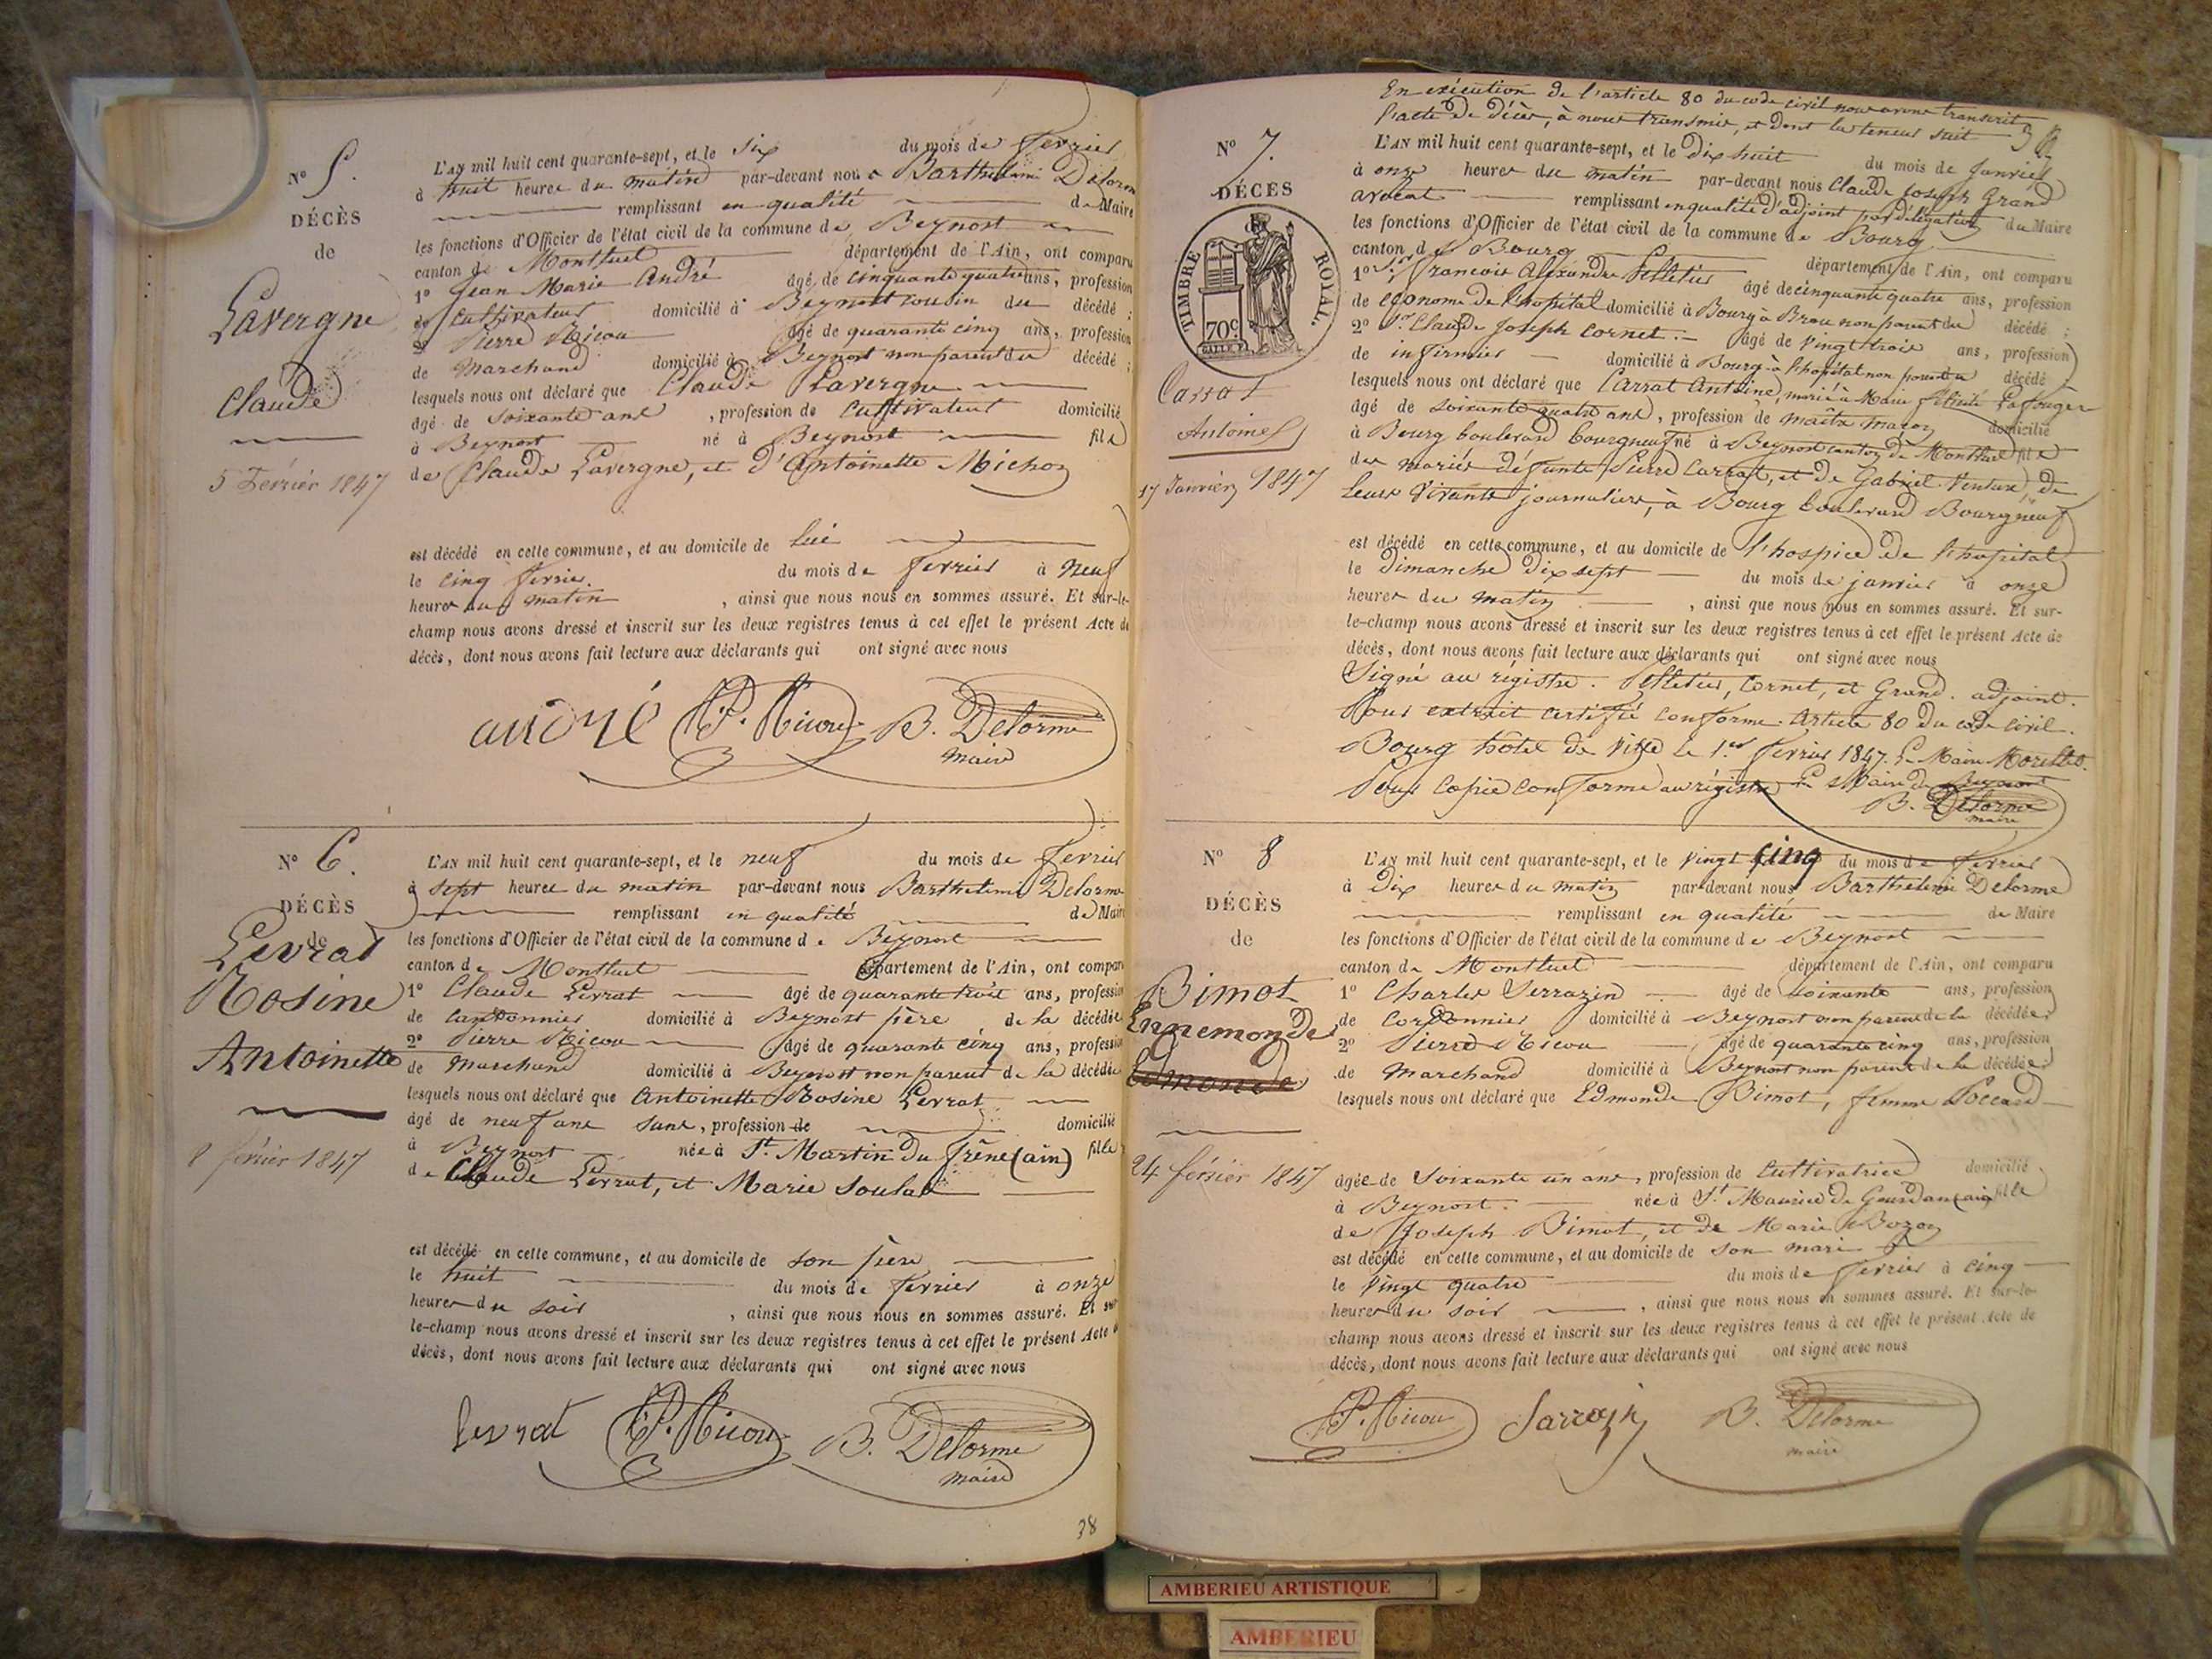 N° 5.
DÉCÈS
de
Lavergne
Claude
5 Février 1847
L'AN mil huit cent quarante-sept, et le six du mois de fevrier
à huit heures du matin par-devant nous Barthelemi Delorme
remplissant en qualité de Maire
les fonctions d'Officier de l'état civil de la commune de Beynost
canton de Montluel département de l'Ain, ont comparu
1° Jean Marie André âgé de cinquante quatre ans, profession
de cultivateur domicilié à Beynost cousin du décédé ;
2° Pierre Nicou âgé de quarante cinq ans, profession
de Marchand domicilié à Beynost non parent du décédé ;
lesquels nous ont déclaré que Claude Lavergne
âgé de soixante ans, profession de cultivateur domicilié
à Beynost né à Beynost fils
de Claude Lavergne, et d'Antoinette Michon
est décédé en cette commune, et au domicile de lui
le cinq fevrier du mois de fevrier à neuf
heures du matin, ainsi que nous nous en sommes assuré. Et sur-le-
champ nous avons dressé et inscrit sur les deux registres tenus à cet effet le présent Acte de
décès, dont nous avons fait lecture aux déclarants qui ont signé avec nous
andré P. Nicou B. Delorme
maire
N° 6.
DÉCÈS
de
Levrat
Rosine
Antoinette
8 février 1847
L'AN mil huit cent quarante-sept, et le neuf du mois de fevrier
à sept heures du matin par-devant nous Barthelemi Delorme
remplissant en qualité de Maire
les fonctions d'Officier de l'état civil de la commune de Beynost
canton de Montluel département de l'Ain, ont comparu
1° Claude Levrat âgé de quarante trois ans, profession
de cantonnier domicilié à Beynost père de la décédée
2° Pierre Nicou âgé de quarante cinq ans, profession
de Marchand domicilié à Beynost non parent de la décédée
lesquels nous ont déclaré que Antoinette Rosine Levrat
âgé de neuf ans sans, profession de domicilié
à Beynost née à St. Martin du frêne (ain) fille
de Claude Levrat, et Marie Soulat
est décédé en cette commune, et au domicile de son père
le huit du mois de fevrier à onze
heures du soir, ainsi que nous nous en sommes assuré. Et sur
le-champ nous avons dressé et inscrit sur les deux registres tenus à cet effet le présent Acte de
décès, dont nous avons fait lecture aux déclarants qui ont signé avec nous
levrat P. Nicou B. Delorme
maire
38
En exécution de l'article 80 du code civil nous avons transcrit
l'acte de décès, à nous transmis, et dont la teneur suit
N° 7.
DÉCÈS
TIMBRE ROYAL.
70c
Carrat
Antoine
17 Janvier 1847
L'AN mil huit cent quarante-sept, et le dix huit du mois de Janvier
à onze heures du matin par-devant nous Claude Joseph Grand
avocat remplissant en qualité d'adjoint par délégation du Maire
les fonctions d'Officier de l'état civil de la commune de Bourg
canton de Bourg département de l'Ain, ont comparu
1° Sr. francois Alexandre Pelletier âgé de cinquante quatre ans, profession
de économe de l'hopital domicilié à Bourg à Brou non parent du décédé ;
2° Sr Claude Joseph Cornet. âgé de vingt trois ans, profession
de infirmier domicilié à Bourg à l'hopital non parent du décédé
lesquels nous ont déclaré que Carrat Antoine, marié à Marie
âgé de soixante quatre ans, profession de maître macon domicilié
à Bourg boulevard bourgneuf né à Beynost canton de Montluel fils
des mariés défunts Pierre Carrat, et de Gabriel Venture, de
leurs vivants journaliers, à Bourg boulevard Bourgneuf
est décédé en cette commune, et au domicile de l'hospice de l'hopital
le dimanche dix sept du mois de janvier à onze
heures du matin, ainsi que nous nous en sommes assuré. Et sur-
le-champ nous avons dressé et inscrit sur les deux registres tenus à cet effet le présent Acte de
décès, dont nous avons fait lecture aux déclarants qui ont signé avec nous
Signé au régistre. Pelletier, Cornet, et Grand. adjoint.
Pour extrait certifié conforme. Article 80 du code civil.
Bourg hôtel de ville le 1er fevrier 1847. Le Maire
Pour copie conforme au régistre Le Maire de Beynost
B. Delorme
maire
N° 8
DÉCÈS
de
Bimot
Ennemonde
Edmonde
24 février 1847
L'AN mil huit cent quarante-sept, et le vingt cinq du mois de fevrier
à dix heures du matin par-devant nous Barthelemi Delorme
remplissant en qualité de Maire
les fonctions d'Officier de l'état civil de la commune de Beynost
canton de Montluel département de l'Ain, ont comparu
1° Charles Serrazin âgé de soixante ans, profession
de Cordonnier domicilié à Beynost non parent de la décédée ;
2° Pierre Nicou âgé de quarante cinq ans, profession
de Marchand domicilié à Beynost non parent de la décédée ;
lesquels nous ont déclaré que Edmonde Bimot, femme Poccard
âgée de soixante un ans, profession de cultivatrice domicilié
à Beynost. née à St Maurice de Gourdan (ain) fille
de Joseph Bimot, et de Marie Bozon
est décédé en cette commune, et au domicile de son mari
le vingt quatre du mois de fevrier à cinq
heures du soir, ainsi que nous nous en sommes assuré. Et sur-le-
champ nous avons dressé et inscrit sur les deux registres tenus à cet effet le présent Acte de
décès, dont nous avons fait lecture aux déclarants qui ont signé avec nous
P. Nicou Sarrazin B. Delorme
maire
AMBERIEU ARTISTIQUE
AMBERIEU